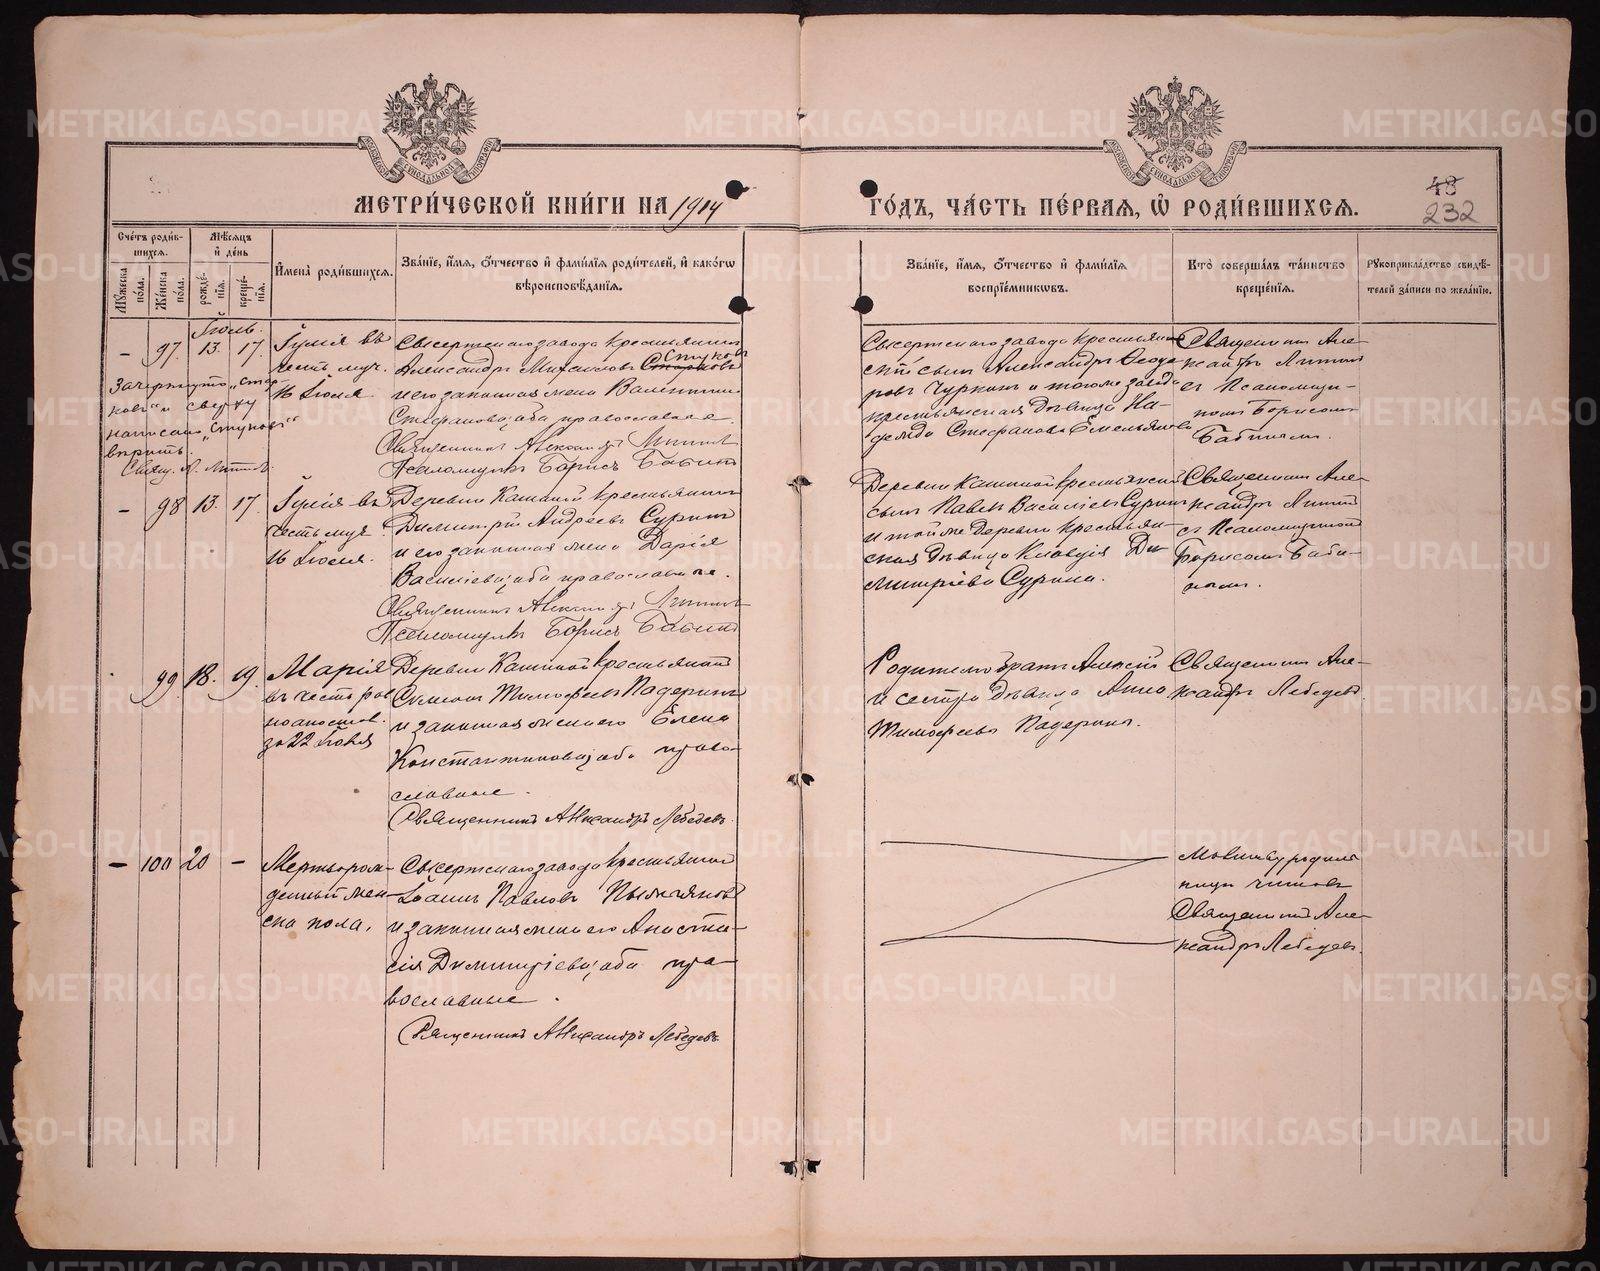 МЕТРИ́ЧЕСКОЙ КНИ́ГИ НА 1914
ГО́ДЪ, ЧА́СТЬ ПЕ́РВАЯ, Ѡ РОДИ́ВШИХСЯ.
48
232
Сче́тъ роди́в-
шихся.
Мѣ́сяцъ
и҆ де́нь
Мꙋ́жеска
по́ла.
Же́нска
по́ла.
рожде́-
нїя.
креще́-
нїя.
И҆мена̀ роди́вшихся.
Зва́нїе, и҆́мя, ѻ҆́тчество и҆ фами́лїя роди́телей, и҆ како́гѡ
вѣроисповѣ́данїя.
Зва́нїе, и҆́мя, ѻ҆́тчество и҆ фами́лїя
воспрїе́мникѡвъ.
Кто̀ соверша́лъ та́инство
креще́нїя.
Рꙋкоприкла́дство свидѣ́-
телей за́писи по жела́нїю.
Іюль.
– 97. 13. 17.
Зачеркнуто „Стар
ковъ" и сверху
написано „Стуковъ"
вѣрить.
Свящ. А. Митинъ.
Іулія въ
честь муч.
16 Іюля
Сысертскаго завода крестьянинъ
Стуковъ
Александръ Михаиловъ Старковъ
и его законная жена Валентина
Стефановна, оба православные.
Священникъ Александръ Митинъ
Псаломщикъ Борисъ Бабинъ
Сысертскаго завода крестьян
скій сынъ Александръ Ѳеодо
ровъ Чуркинъ и того же завода
крестьянская дѣвица На-
дежда Стефанова Емельянова
Священникъ Але-
ксандръ Митинъ
съ Псаломщи-
комъ Борисомъ
Бабинымъ.
– 98 13. 17.
Іулія въ
честь муч.
16 Іюля.
Деревни Кашиной крестьянинъ
Димитрій Андреевъ Суринъ
и его законная жена Дарія
Василіева, оба православные.
Священникъ Александръ Митинъ
Псаломщикъ Борисъ Бабинъ
Деревни Кашиной крестьянскій
сынъ Павелъ Василіевъ Суринъ
и той же деревни крестьян-
ская дѣвица Клавдія Ди-
митріева Сурина.
Священникъ Але-
ксандръ Митинъ
съ Псаломщикомъ
Борисомъ Баби-
нымъ.
99 18. 19.
Марія
въ честь рав
ноапостол.
за 22 Іюля
Деревни Кашиной крестьянинъ
Симеонъ Тимофеевъ Падеринъ
и законная жена его Елена
Константинова, оба право-
славные.
Священникъ Александръ Лебедевъ.
Родителю братъ Алексій
и сестра дѣвица Анна
Тимофеевы Падерины.
Священникъ Але-
ксандръ Лебедевъ.
– 100 20 –
Мертворож-
денный жен-
ска пола.
Сысертскаго завода крестьянинъ
Іоаннъ Павловъ
и законная жена его Анаста-
сія Димитріева, оба пра-
вославные.
Священникъ Александръ Лебедевъ
Молитву родиль
ницѣ читалъ
Священникъ Але-
ксандръ Лебедевъ.
METRIKI.GASO-URAL.RU